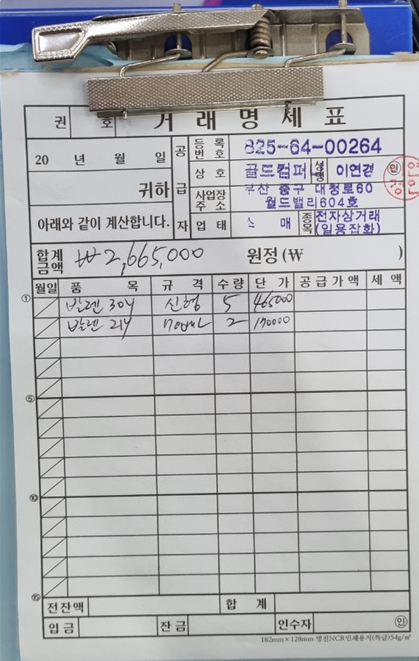 권 호 거 래 명 세 표
20 년 월 일
귀하
아래와 같이 계산합니다.
공 급 자
등록번호 825-64-00264
상 호 골드컴퍼 성명 이연경 ㊞
사업장주소 부산 중구 대청로60
월드밸리604호
업 태 소 매 종목 전자상거래
(일용잡화)
합계금액 ₩2,665,000 원정 (₩ )
월일 품 목 규 격 수량 단 가 공급가액 세 액
① 발렌 30y 신형 5 465000
발렌 21y 700ml 2 170000
⑤
⑩
⑮
전잔액 합 계
입 금 잔 금 인수자 ㊞
182mm×128mm 명진NCR인쇄용지(특급)54g/㎡